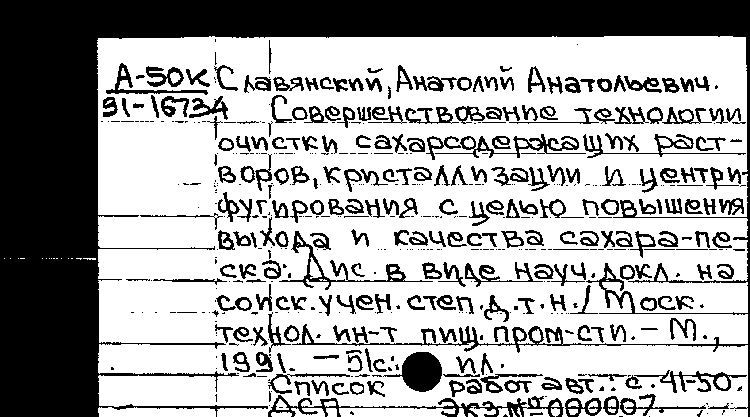 А-50к Славянский, Анатолий Анатольевич.
91-16734 Совершенствование технологии
очистки сахарсодержащих раст-
воров, кристаллизации и центри-
фугирования с целью повышения
выхода и качества сахара-пе-
ска: Дис. в виде науч. докл. на
соиск. учен. степ. д.т.н. / Моск.
технол. ин-т пищ. пром-сти. - М.,
1991. - 51с.: ил.
Список работ авт.: с. 41-50.
ДСП. Экз. № 000007.